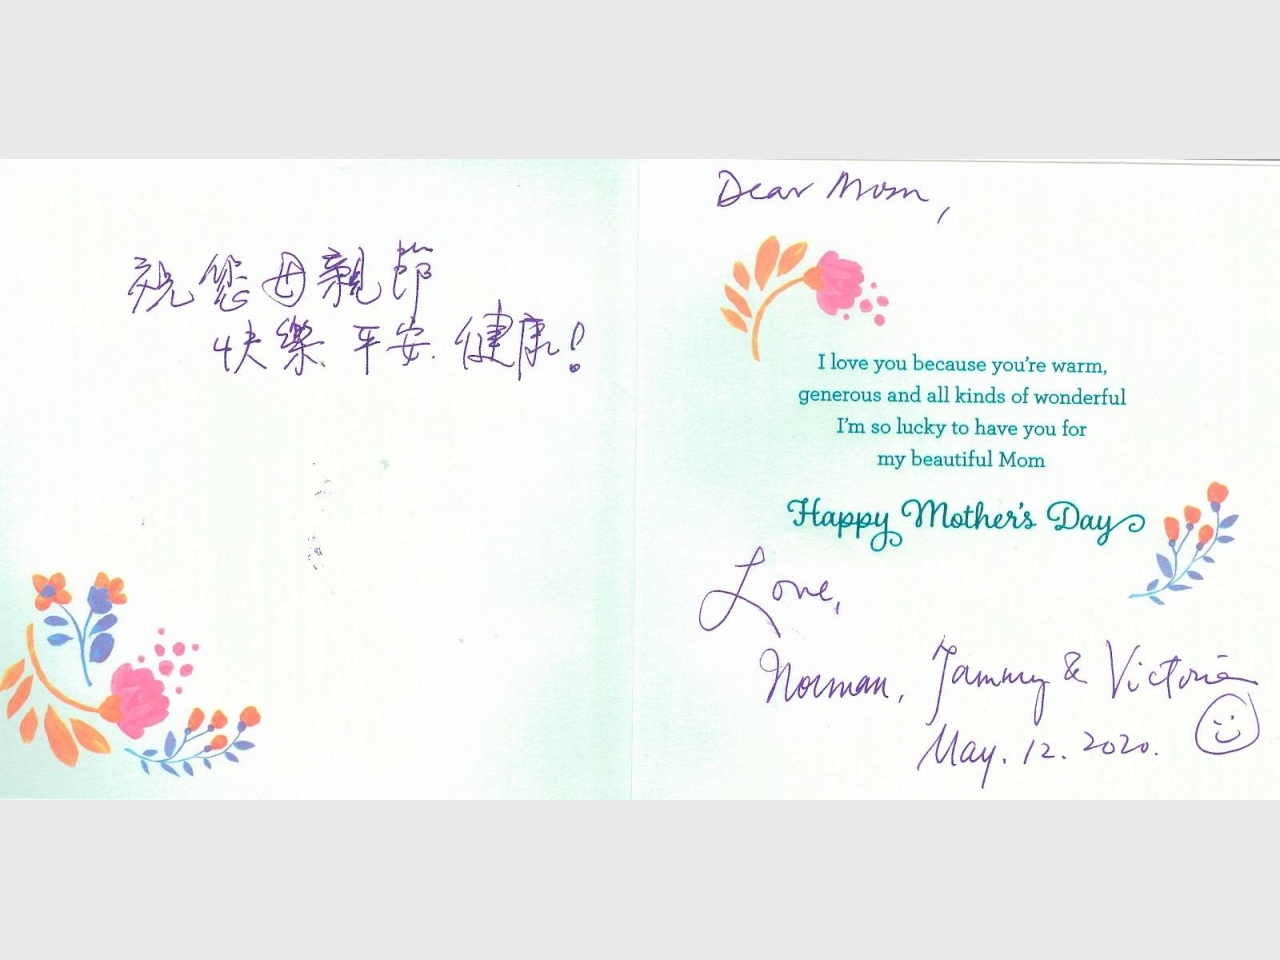 祝您母親節
快樂、平安、健康!
Dear Mom,
I love you because you're warm,
generous and all kinds of wonderful
I'm so lucky to have you for
my beautiful Mom
Happy Mother's Day
Love,
Norman, Tammy & Victoria
May. 12. 2020.